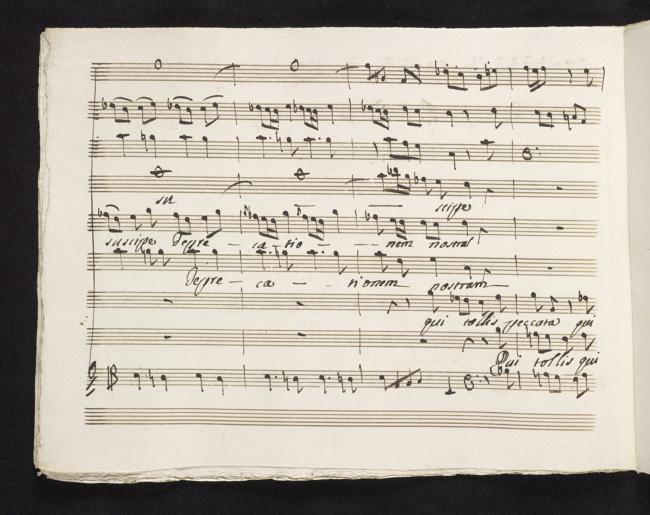 su scipe
suscipe depre - ca - tio - - - nem nostra
depre - ca - - tionem nostram
qui tollis peccata qui
Qui tollis qui